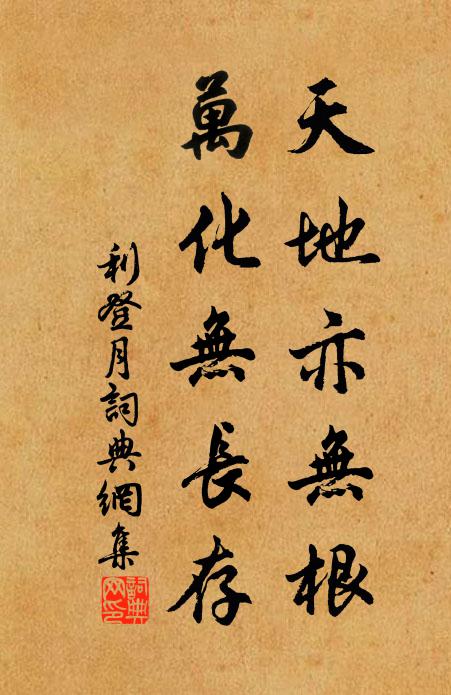 天地亦無根
萬化無長存
利登月詞典網集
詞典
网印